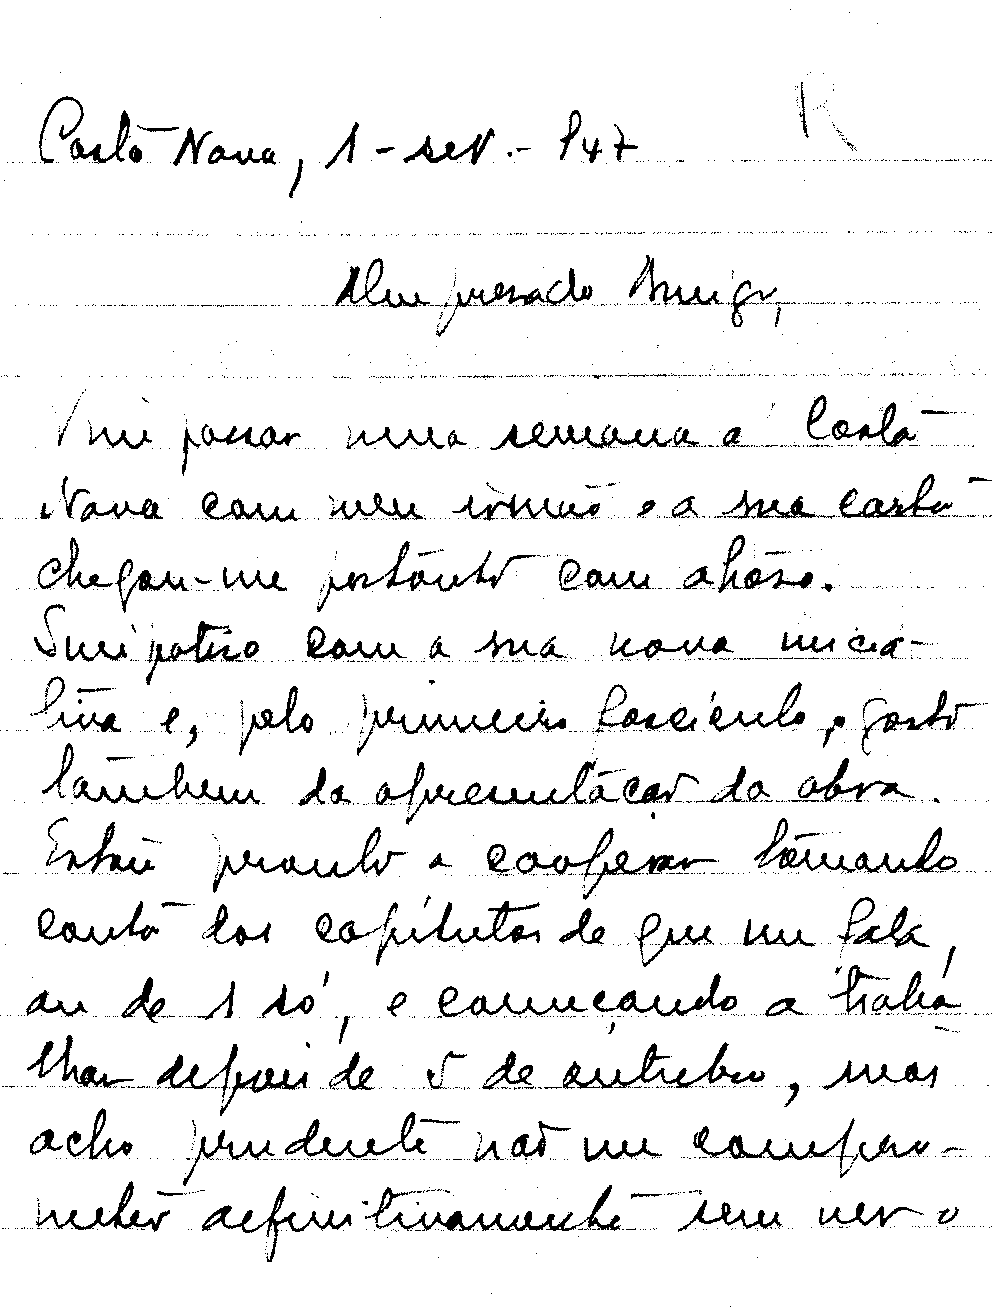 R
Costa Nova, 1 - set. - 947
Meu presado Amigo,
Vim passar uma semana á Costa
Nova com meu irmão e a sua carta
chegou-me portanto com atraso.
Simpatiso com a sua nova inicia-
tiva e, pelo primeiro fasciculo, gosto
tambem da apresentação da obra.
Estou pronto a cooperar tomando
conta dos capitulos de que me fala,
ou de 1 só, e começando a traba
lhar depois de 5 de outubro, mas
acho prudente não me compro-
meter definitivamente sem ver o